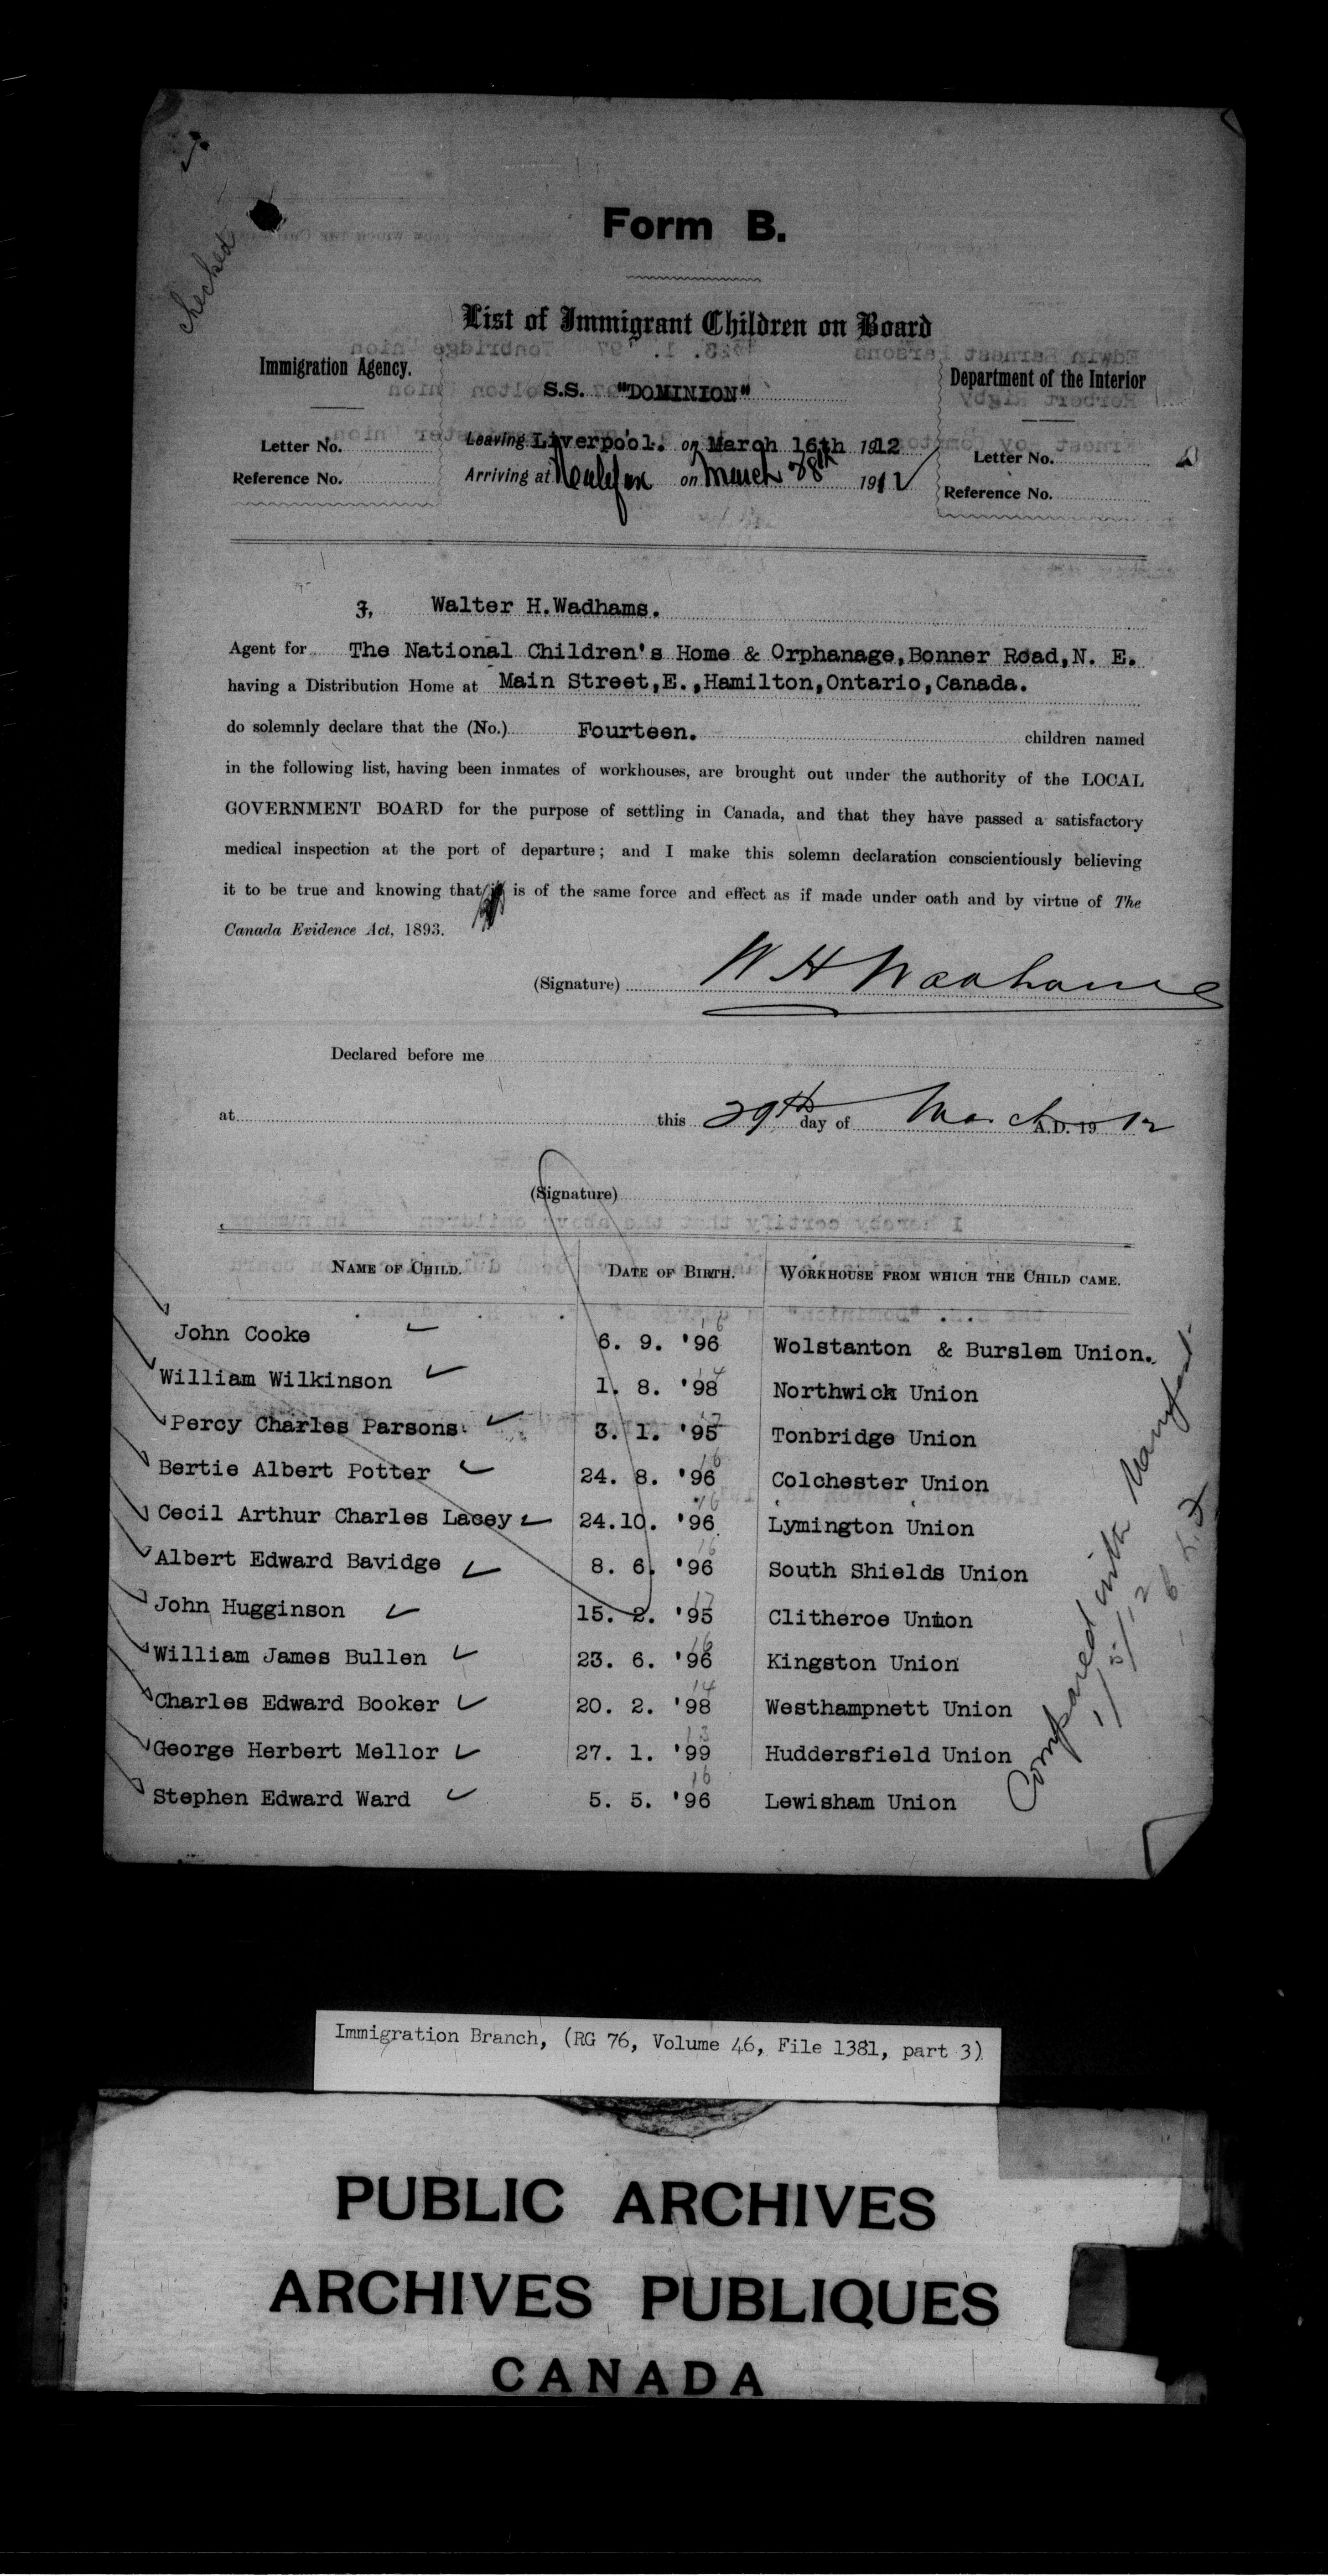 checked
Form B.
List of Immigrant Children on Board
Immigration Agency.
S.S. "DOMINION"
Department of the Interior
Letter No.
Leaving Liverpool. on March 16th 1912
Letter No.
Reference No.
Arriving at Halifax on March 28th 1912
Reference No.
I, Walter H.Wadhams.
Agent for The National Children's Home & Orphanage,Bonner Road,N. E.
having a Distribution Home at Main Street,E.,Hamilton,Ontario,Canada.
do solemnly declare that the (No.) Fourteen. children named
in the following list, having been inmates of workhouses, are brought out under the authority of the LOCAL
GOVERNMENT BOARD for the purpose of settling in Canada, and that they have passed a satisfactory
medical inspection at the port of departure; and I make this solemn declaration conscientiously believing
it to be true and knowing that it is of the same force and effect as if made under oath and by virtue of The
Canada Evidence Act, 1893.
(Signature) W H Wadhams
Declared before me
at this 29th day of March A.D. 1912
(Signature)
NAME OF CHILD. DATE OF BIRTH. WORKHOUSE FROM WHICH THE CHILD CAME.
16
John Cooke 6. 9. '96 Wolstanton & Burslem Union.
14
William Wilkinson 1. 8. '98 Northwich Union
17
Percy Charles Parsons 3. 1. '95 Tonbridge Union
16
Bertie Albert Potter 24. 8. '96 Colchester Union
16
Cecil Arthur Charles Lacey 24.10. '96 Lymington Union
16
Albert Edward Bavidge 8. 6. '96 South Shields Union
17
John Hugginson 15. 2. '95 Clitheroe Union
16
William James Bullen 23. 6. '96 Kingston Union
14
Charles Edward Booker 20. 2. '98 Westhampnett Union
13
George Herbert Mellor 27. 1. '99 Huddersfield Union
16
Stephen Edward Ward 5. 5. '96 Lewisham Union
Compared with Manifest
1/5/12
Immigration Branch, (RG 76, Volume 46, File 1381, part 3)
PUBLIC ARCHIVES
ARCHIVES PUBLIQUES
CANADA